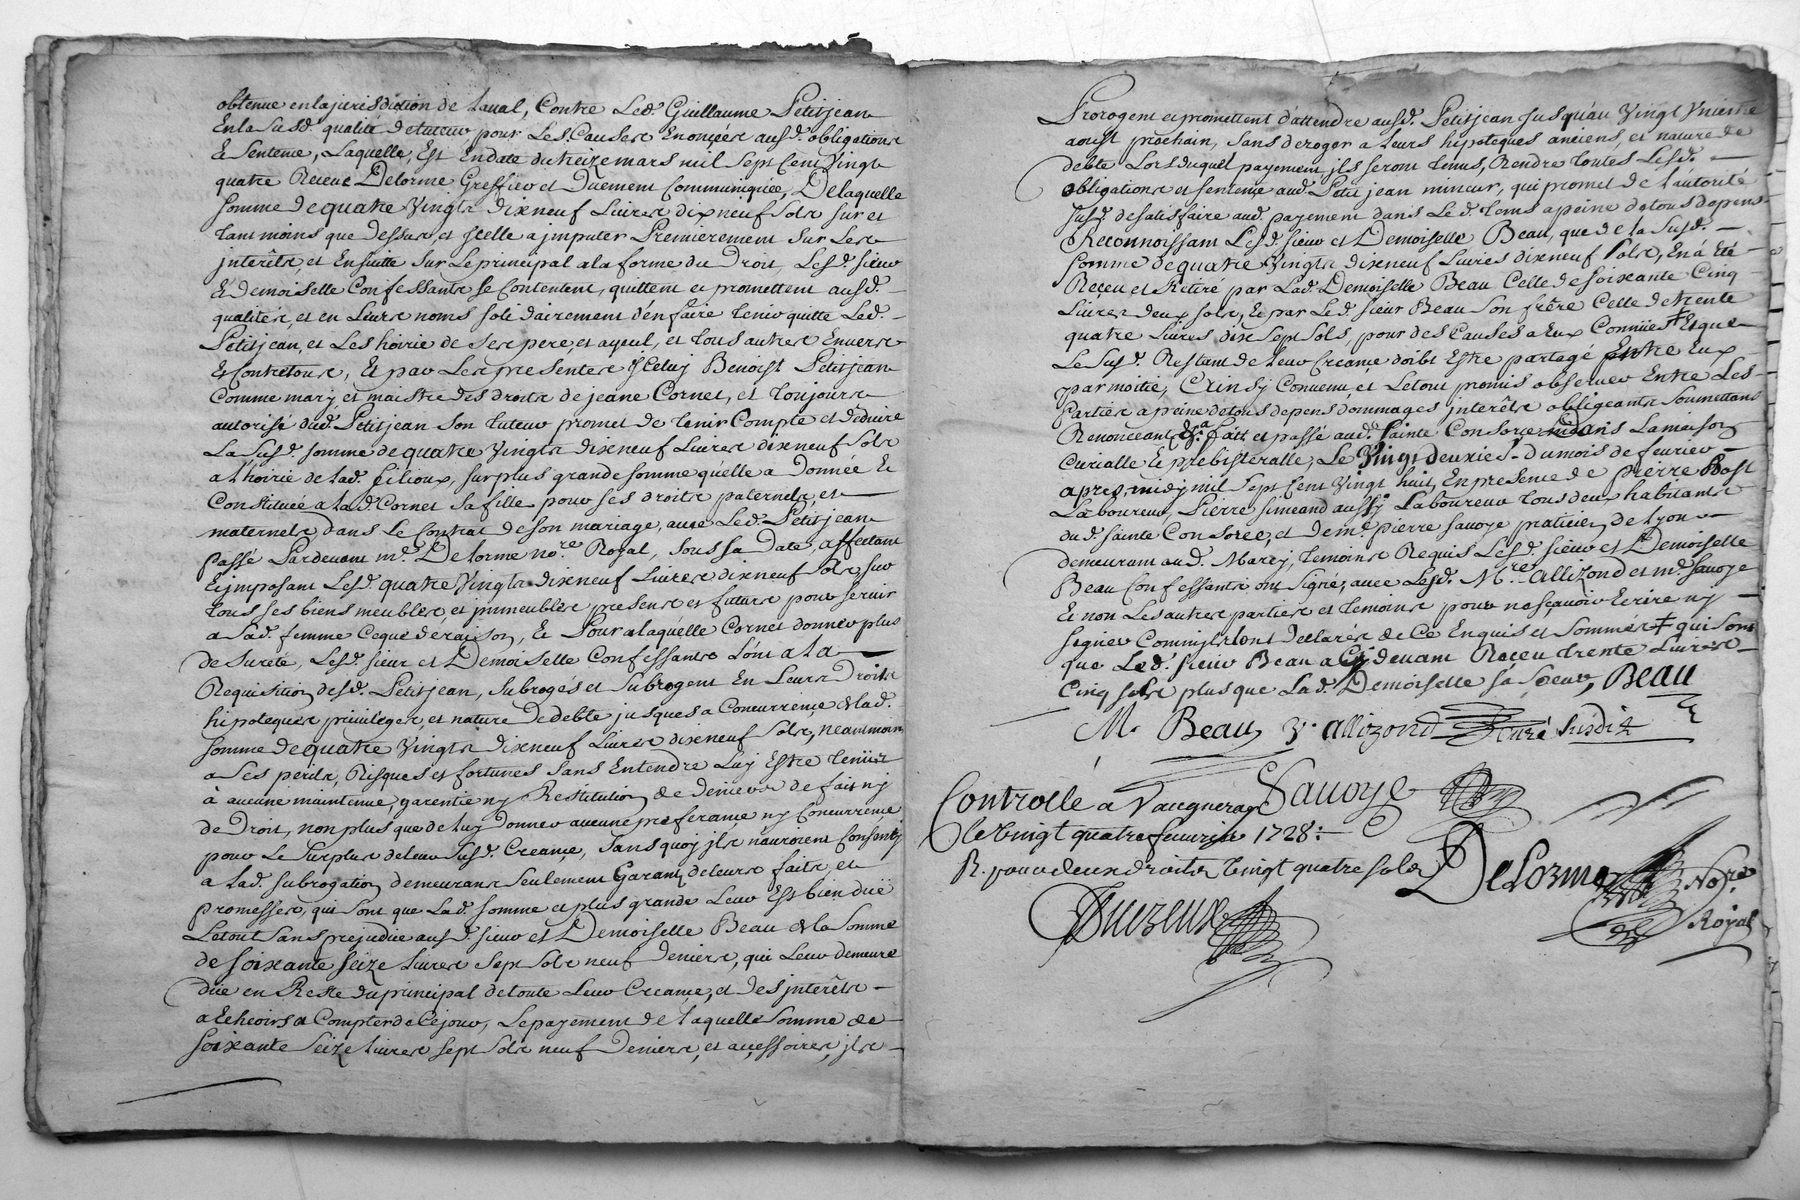 obtenue en la jurisdiction de Laual, Contre Led. Guillaume Petitjean
En la Susd. qualité de tuteur pour Les Causes Enoncées ausd. obligations
Et Sentence, Laquelle, Est En date du treize mars mil Sept Cent Vingt
quatre Receue Delorme Greffier et Duement Communiquée, De laquelle
Somme De quatre Vingts dixneuf Liures dix neuf Sols Sur et
tant moins que Dessus, et Icelle a jmputer Premierement Sur Les
jnterêts, et Ensuitte Sur Le principal a la forme du Droit, Lesd. sieur
Et Demoiselle Confessants se Contentent, quittent et promettent ausd.
qualités, et en Leurs noms solidairement d'en faire tenir quitte Led.
Petitjean, et Les hoirie de Ses pere, et ayeul, et tous autres Enuers
Et Contre tous, Et par Les presentes Iceluy Benoist Petitjean
Comme mary et maistre des droits de jeane Cornet, et toujours
autorisé dud. Petitjean Son tuteur promet de tenir Compte et déduire
La Susd. somme de quatre Vingts dixneuf Liures dixneuf Sols
a l'hoirie de Lad. filioux, sur plus grande somme qu'elle a Donnée Et
Constituée a Lad. Cornet Sa fille pour ses droits paternels, et
maternels, dans Le Contrat de son mariage, auec Led. Petitjean
passé Pardeuant me. Delorme nore. Royal, sous sa Date, affectant
Et jmposant Lesd. quatre Vingts dixneuf Liures dixneuf Sols, sur
tous ses biens meubles, et jmmeubles presens et futurs pour seruir
a Sad. femme Ceque de raison, Et Pour a laquelle Cornet donner plus
de Sureté, Lesd. sieur et Demoiselle Confessants L'ont a la
Requisition desd. Petitjean, subrogés et Subrogent En Leurs Droits
hipoteques priuileges, et nature De debte jusques a Concurrence de lad.
somme De quatre Vingts dixneuf Liures dixneuf Sols, neantmoins
a Ses perils, Risques et fortunes Sans Entendre Luy Estre tenus
à aucune maintenue, garentie ny Restitution de Deniers de fait ny
de Droit, non plus que de luy Donner aucune preferance ny Concurrence
pour Le Surplus de leur Susd. Creance, Sans quoy jls n'auroient Consenty
a Lad. subrogation demeurans Seulement Garant de leurs faits, et
promesses, qui sont que Lad. somme et plus grande Leur Est bien düe
Le tout Sans prejudice ausd. sieur et Demoiselle Beau de la Somme
de soixante seize Liures Sept Sols neuf Deniers, qui Leur demeure
düe en Reste du principal de toute Leur Creance, et Des jnterêts
a Echeoirs a Compter de Ce jour, Le payement de laquelle Somme de
soixante Seize Liures sept Sols neuf Deniers, et accessoires, jls
Prorogent et promettent d'attendre ausd. Petitjean jusqu'au Vingt Vnieme
aoust prochain, Sans deroger a Leurs hipoteques anciens, et nature de
debte Lors duquel payement jls seront tenus, Rendre toutes Lesd.
obligations et sentence aud. Petit jean mineur, qui promet de l'autorité
susd. de satisfaire aud. payement dans Le d. tems a peine de tous depens
Reconnoissant Lesd. sieur et Demoiselle Beau, que de la Susd.
somme de quatre Vingts dixneuf Liures dixneuf Sols, En a Eté
Receu et Retiré par Lad. Demoiselle Beau Celle de soixante Cinq
Liures deux sols, Et par Led. sieur Beau Son frere Celle de trente
quatre Liures dix sept Sols, pour des Causes a Eux Connües ‡ Et que
Le Susd. Restant de Leur Creance doibt Estre partagé Entre Eux
par moitié, Et Insy Conuenu, et Letout promis obseruer Entre Les
Parties a peine de tous depens dommages interêts obligeants Soumettans
Renonceant &a. fait et passé aud. Sainte Consorce dans La maison
Curialle Et presbiteralle, Le Vingt deuxies. Du mois de feurier
apres midy mil Sept Cent Vingt huit, En presence de Pierre Bost
Laboureur, Pierre Simeand aussy Laboureur tous deux habitants
du d. Sainte Consorce, et de me. pierre Sauoye praticien de Lyon
demeurant aud. Marcy, temoins Requis Lesd. sieur et Demoiselle
Beau Confessants ont Signé, auec Lesd. Mre. allizond et me. Sauoye
Et non Les autres parties et temoins pour ne scauoir Ecrire ny
signer Comm'ils ont Declarés de Ce Enquis et Sommés ‡ qui sont
que Led. sieur Beau a Cydeuant Receu trente Liures
Cinq sols plus que Lad. Demoiselle sa soeur, Beau
M. Beau y. allizond Curé Susdit
Controllé a Vaugneray Sauoye
le Vingt quatre feurier 1728:
R. pour deux droits Vingt quatre sols
Delorme Nore.
Royal